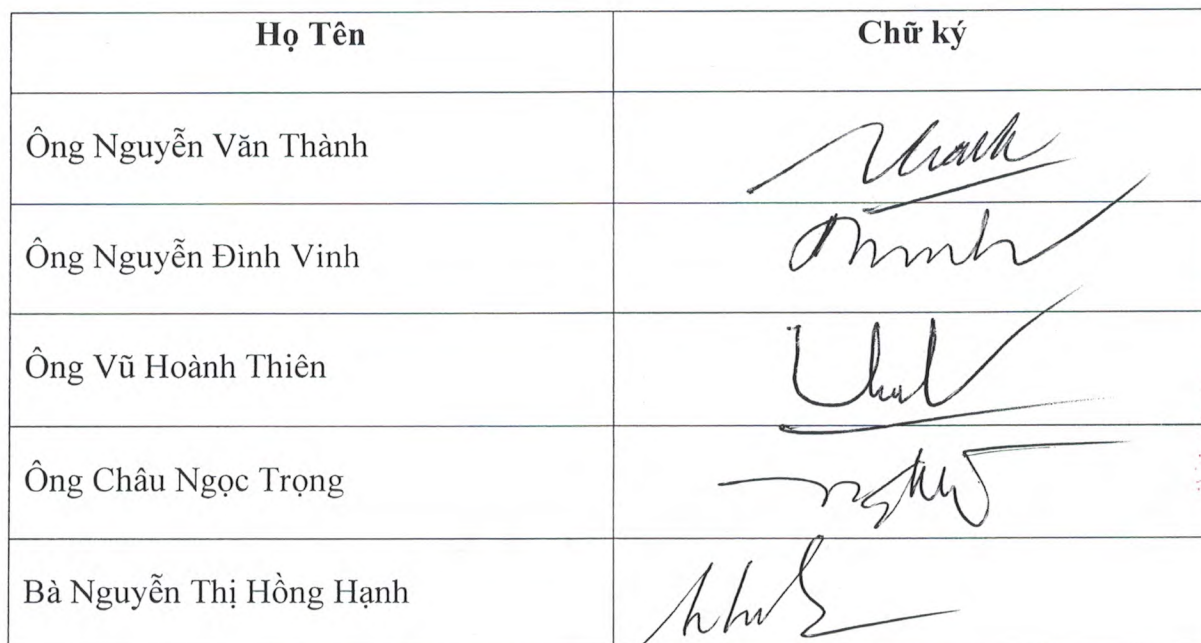 Họ Tên
Chữ ký
Ông Nguyễn Văn Thành
Ông Nguyễn Đình Vinh
Ông Vũ Hoành Thiên
Ông Châu Ngọc Trọng
Bà Nguyễn Thị Hồng Hạnh